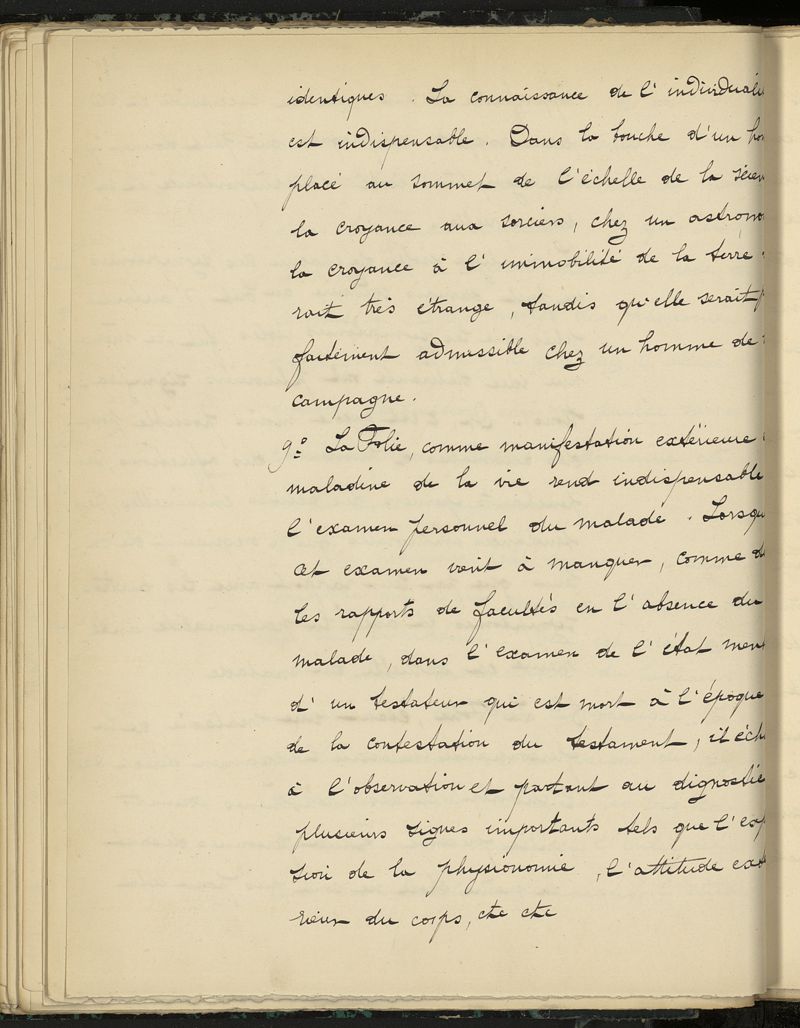 identiques. La connaissance de l'individuali
est indispensable. Dans la bouche d'un hom
placé au sommet de l'échelle de la scien
la croyance aux sorciers, chez un astrono
la croyance à l'immobilité de la terre
rait très étrange, tandis qu'elle serait p
faitement admissible chez un homme de
campagne.
9º La Folie, comme manifestation extérieure
maladive de la vie rend indispensable
l'examen personnel du malade. Lorsqu
cet examen vient à manquer, comme d
les rapports de facultés en l'absence du
malade, dans l'examen de l'état men
d'un testateur qui est mort à l'époque
de la contestation du testament, il éch
à l'observation et partant au dignostic
plusieurs signes importants tels que l'exp
sion de la physionomie, l'attitude exté
rieur du corps, etc etc